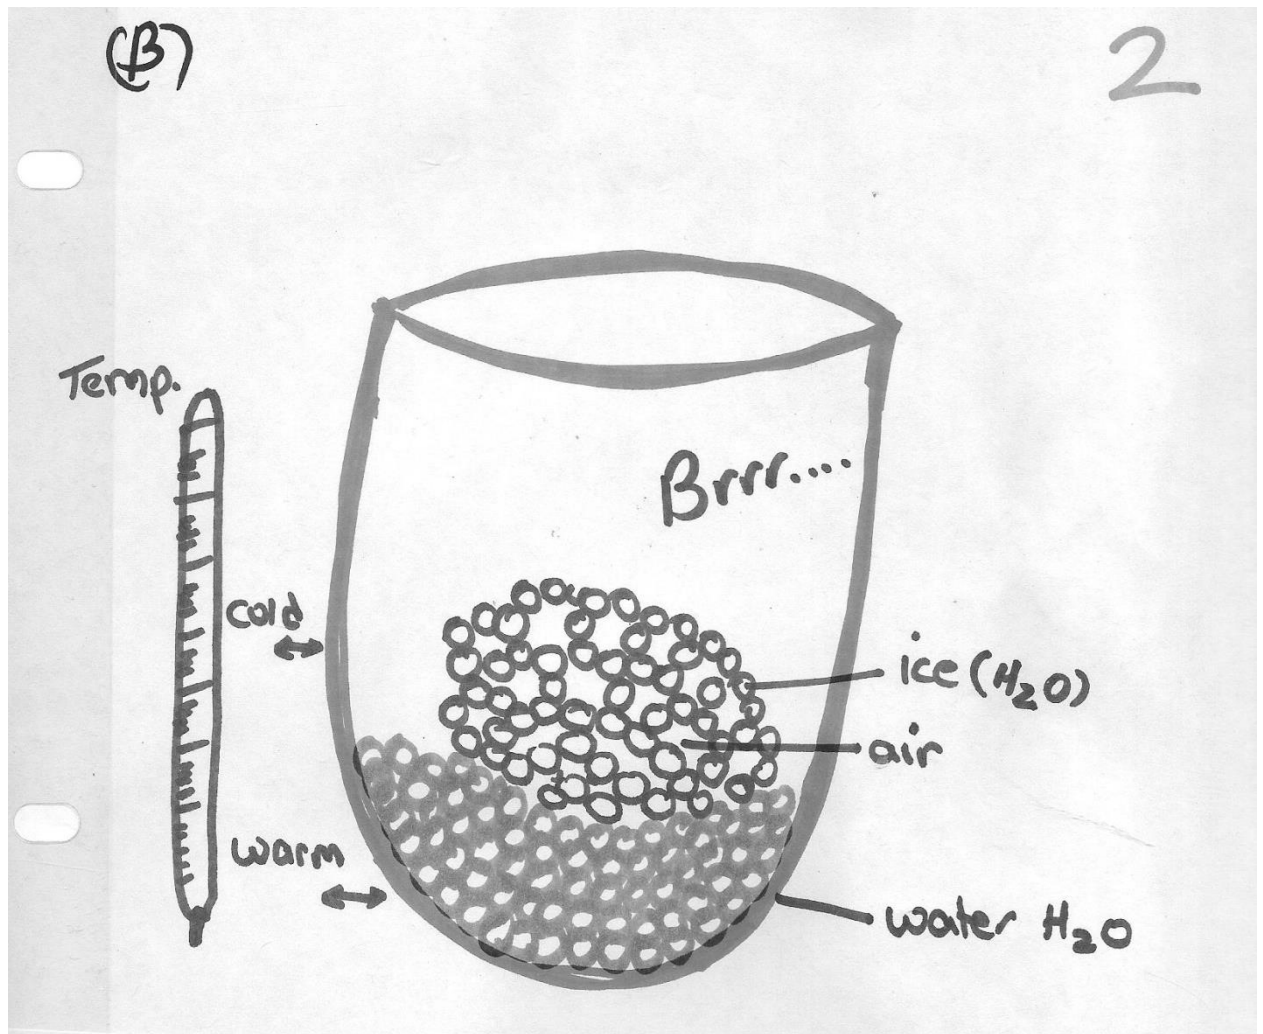 (B)
2
Temp.
Brrr....
cold
ice (H₂O)
air
warm
water H₂O